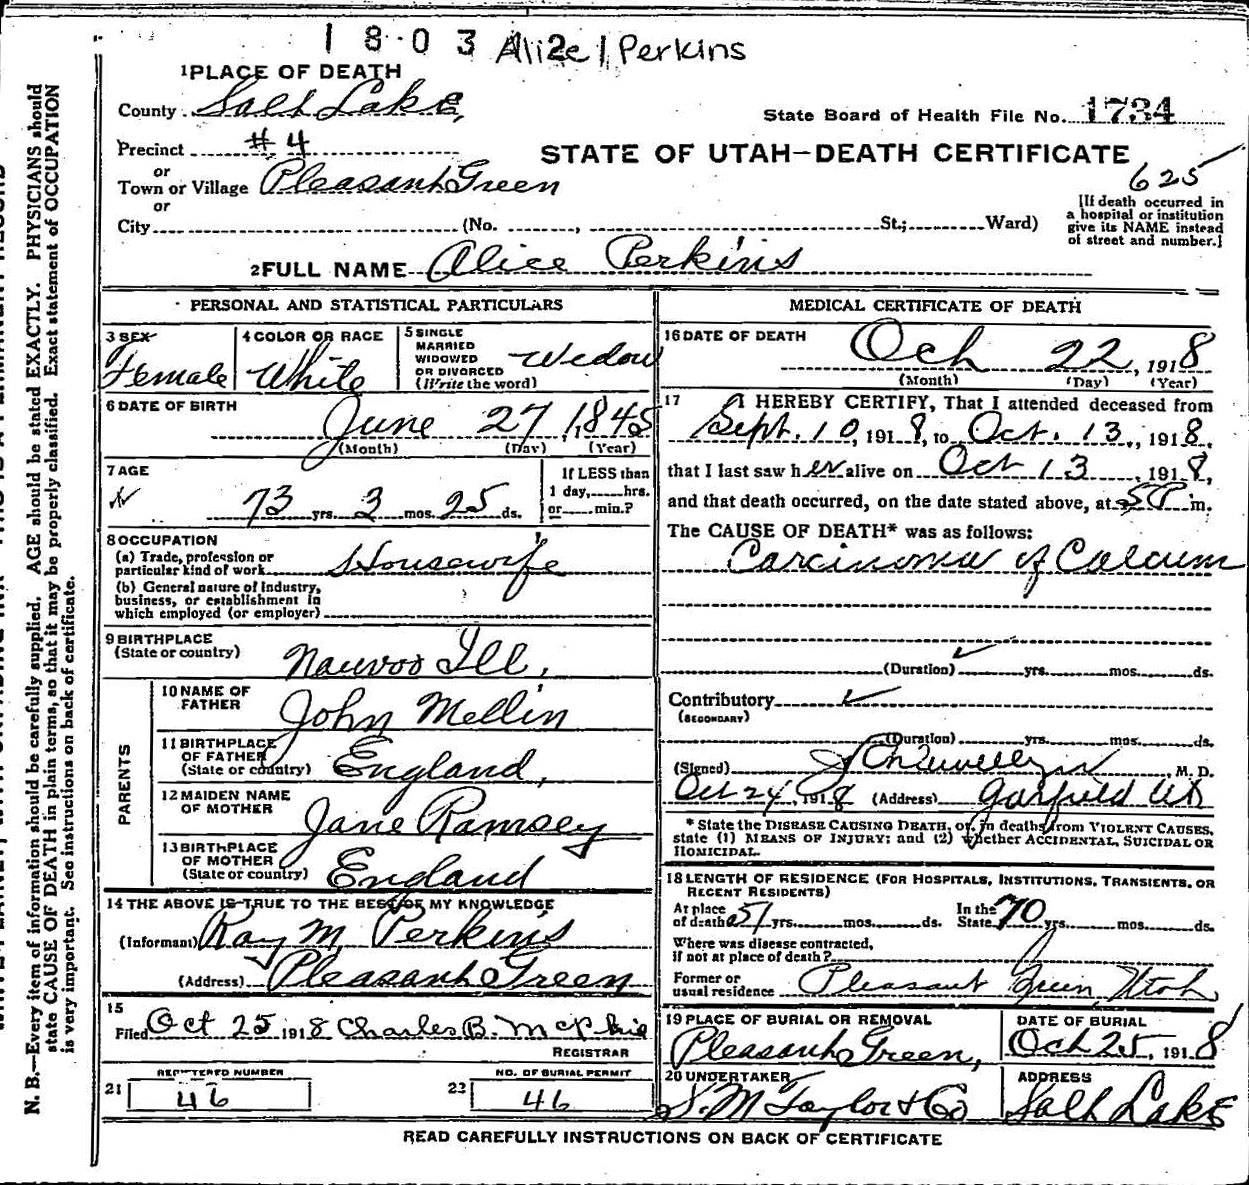 1803 Alice Perkins
1 PLACE OF DEATH
County Salt Lake,
State Board of Health File No. 1734
Precinct #4
STATE OF UTAH-DEATH CERTIFICATE
or
Town or Village Pleasant Green
625
or
City (No. , St.; Ward)
[If death occurred in
a hospital or institution
give its NAME instead
of street and number.]
2 FULL NAME Alice Perkins
PERSONAL AND STATISTICAL PARTICULARS
3 SEX
Female
4 COLOR OR RACE
White
5 SINGLE
MARRIED
WIDOWED
OR DIVORCED
(Write the word)
Widow
6 DATE OF BIRTH
June 27, 1845
(Month) (Day) (Year)
7 AGE
73 yrs. 3 mos. 25 ds.
If LESS than
1 day, hrs.
or min.?
8 OCCUPATION
(a) Trade, profession or
particular kind of work Housewife
(b) General nature of industry,
business, or establishment in
which employed (or employer)
9 BIRTHPLACE
(State or country) Nauvoo Ill,
PARENTS
10 NAME OF
FATHER
John Mellin
11 BIRTHPLACE
OF FATHER
(State or country) England,
12 MAIDEN NAME
OF MOTHER
Jane Ramsey
13 BIRTHPLACE
OF MOTHER
(State or country) England
14 THE ABOVE IS TRUE TO THE BEST OF MY KNOWLEDGE
(Informant) Ray M Perkins
(Address) Pleasant Green
15
Filed Oct 25 1918 Charles B. McPhie
REGISTRAR
REGISTERED NUMBER
21 46
NO. OF BURIAL PERMIT
22 46
MEDICAL CERTIFICATE OF DEATH
16 DATE OF DEATH
Oct 22, 1918
(Month) (Day) (Year)
17 I HEREBY CERTIFY, That I attended deceased from
Sept. 10, 1918, to Oct. 13, 1918,
that I last saw her alive on Oct 13, 1918,
and that death occurred, on the date stated above, at 5 P m.
The CAUSE OF DEATH* was as follows:
Carcinoma of Calcum
(Duration) yrs. mos. ds.
Contributory
(SECONDARY)
(Duration) yrs. mos. ds.
(Signed) , M. D.
Oct 24, 1918 (Address) Garfield Ut
* State the DISEASE CAUSING DEATH, or, in deaths from VIOLENT CAUSES,
state (1) MEANS OF INJURY; and (2) whether ACCIDENTAL, SUICIDAL OR
HOMICIDAL.
18 LENGTH OF RESIDENCE (FOR HOSPITALS, INSTITUTIONS, TRANSIENTS, OR
RECENT RESIDENTS)
At place
of death 51 yrs. mos. ds.
In the
State 70 yrs. mos. ds.
Where was disease contracted,
if not at place of death?
Former or
usual residence Pleasant Green, Utah
19 PLACE OF BURIAL OR REMOVAL
Pleasant Green,
DATE OF BURIAL
Oct 25, 1918
20 UNDERTAKER
S. M Taylor & Co
ADDRESS
Salt Lake
READ CAREFULLY INSTRUCTIONS ON BACK OF CERTIFICATE
N. B.—Every item of information should be carefully supplied. AGE should be stated EXACTLY. PHYSICIANS should
state CAUSE OF DEATH in plain terms, so that it may be properly classified. Exact statement of OCCUPATION
is very important. See instructions on back of certificate.